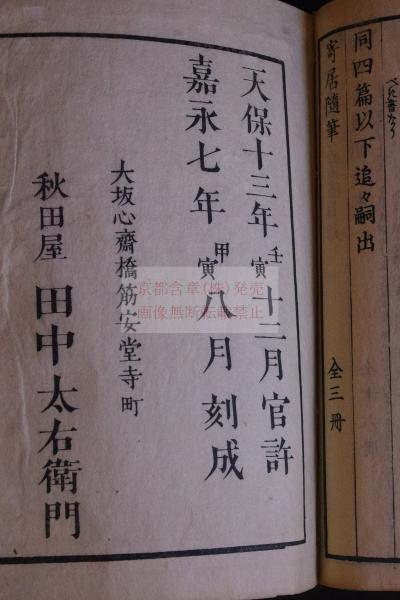 べた書なり
同四篇以下追々嗣出
寄居隨筆 全三冊
天保十三年壬寅十二月官許
嘉永七年甲寅八月刻成
大坂心齋橋筋安堂寺町
秋田屋 田中太右衛門
京都含章(株)発売
画像無断転載禁止